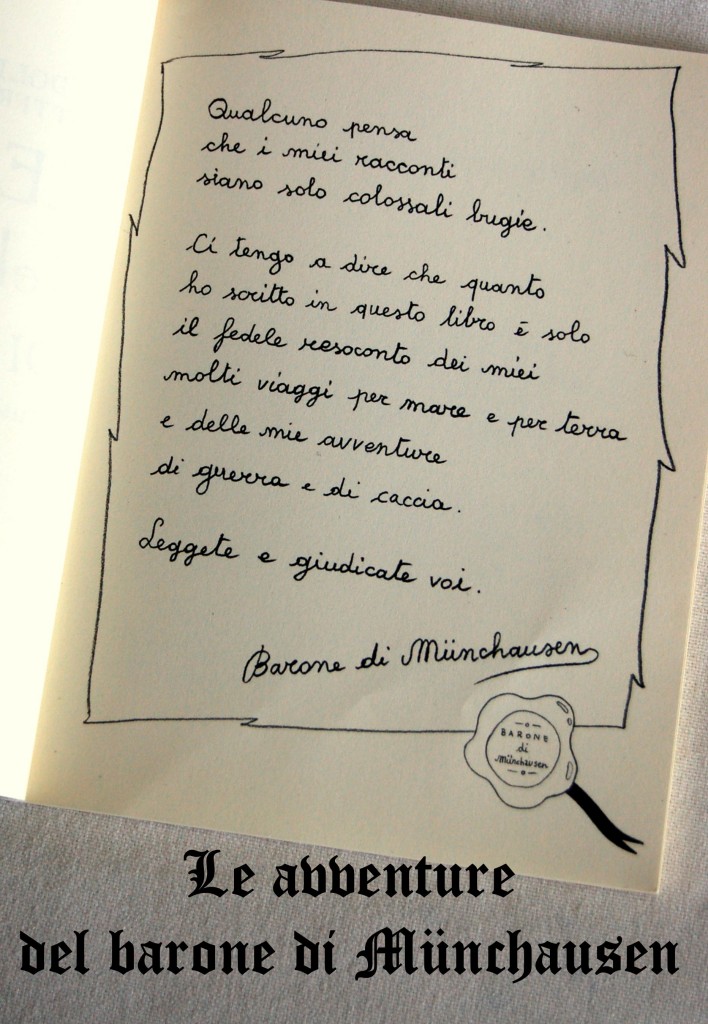 Qualcuno pensa
che i miei racconti
siano solo colossali bugie.
Ci tengo a dire che quanto
ho scritto in questo libro è solo
il fedele resoconto dei miei
molti viaggi per mare e per terra
e delle mie avventure
di guerra e di caccia.
Leggete e giudicate voi.
Barone di Münchausen
BARONE
di
Münchausen
Le avventure
del barone di Münchausen